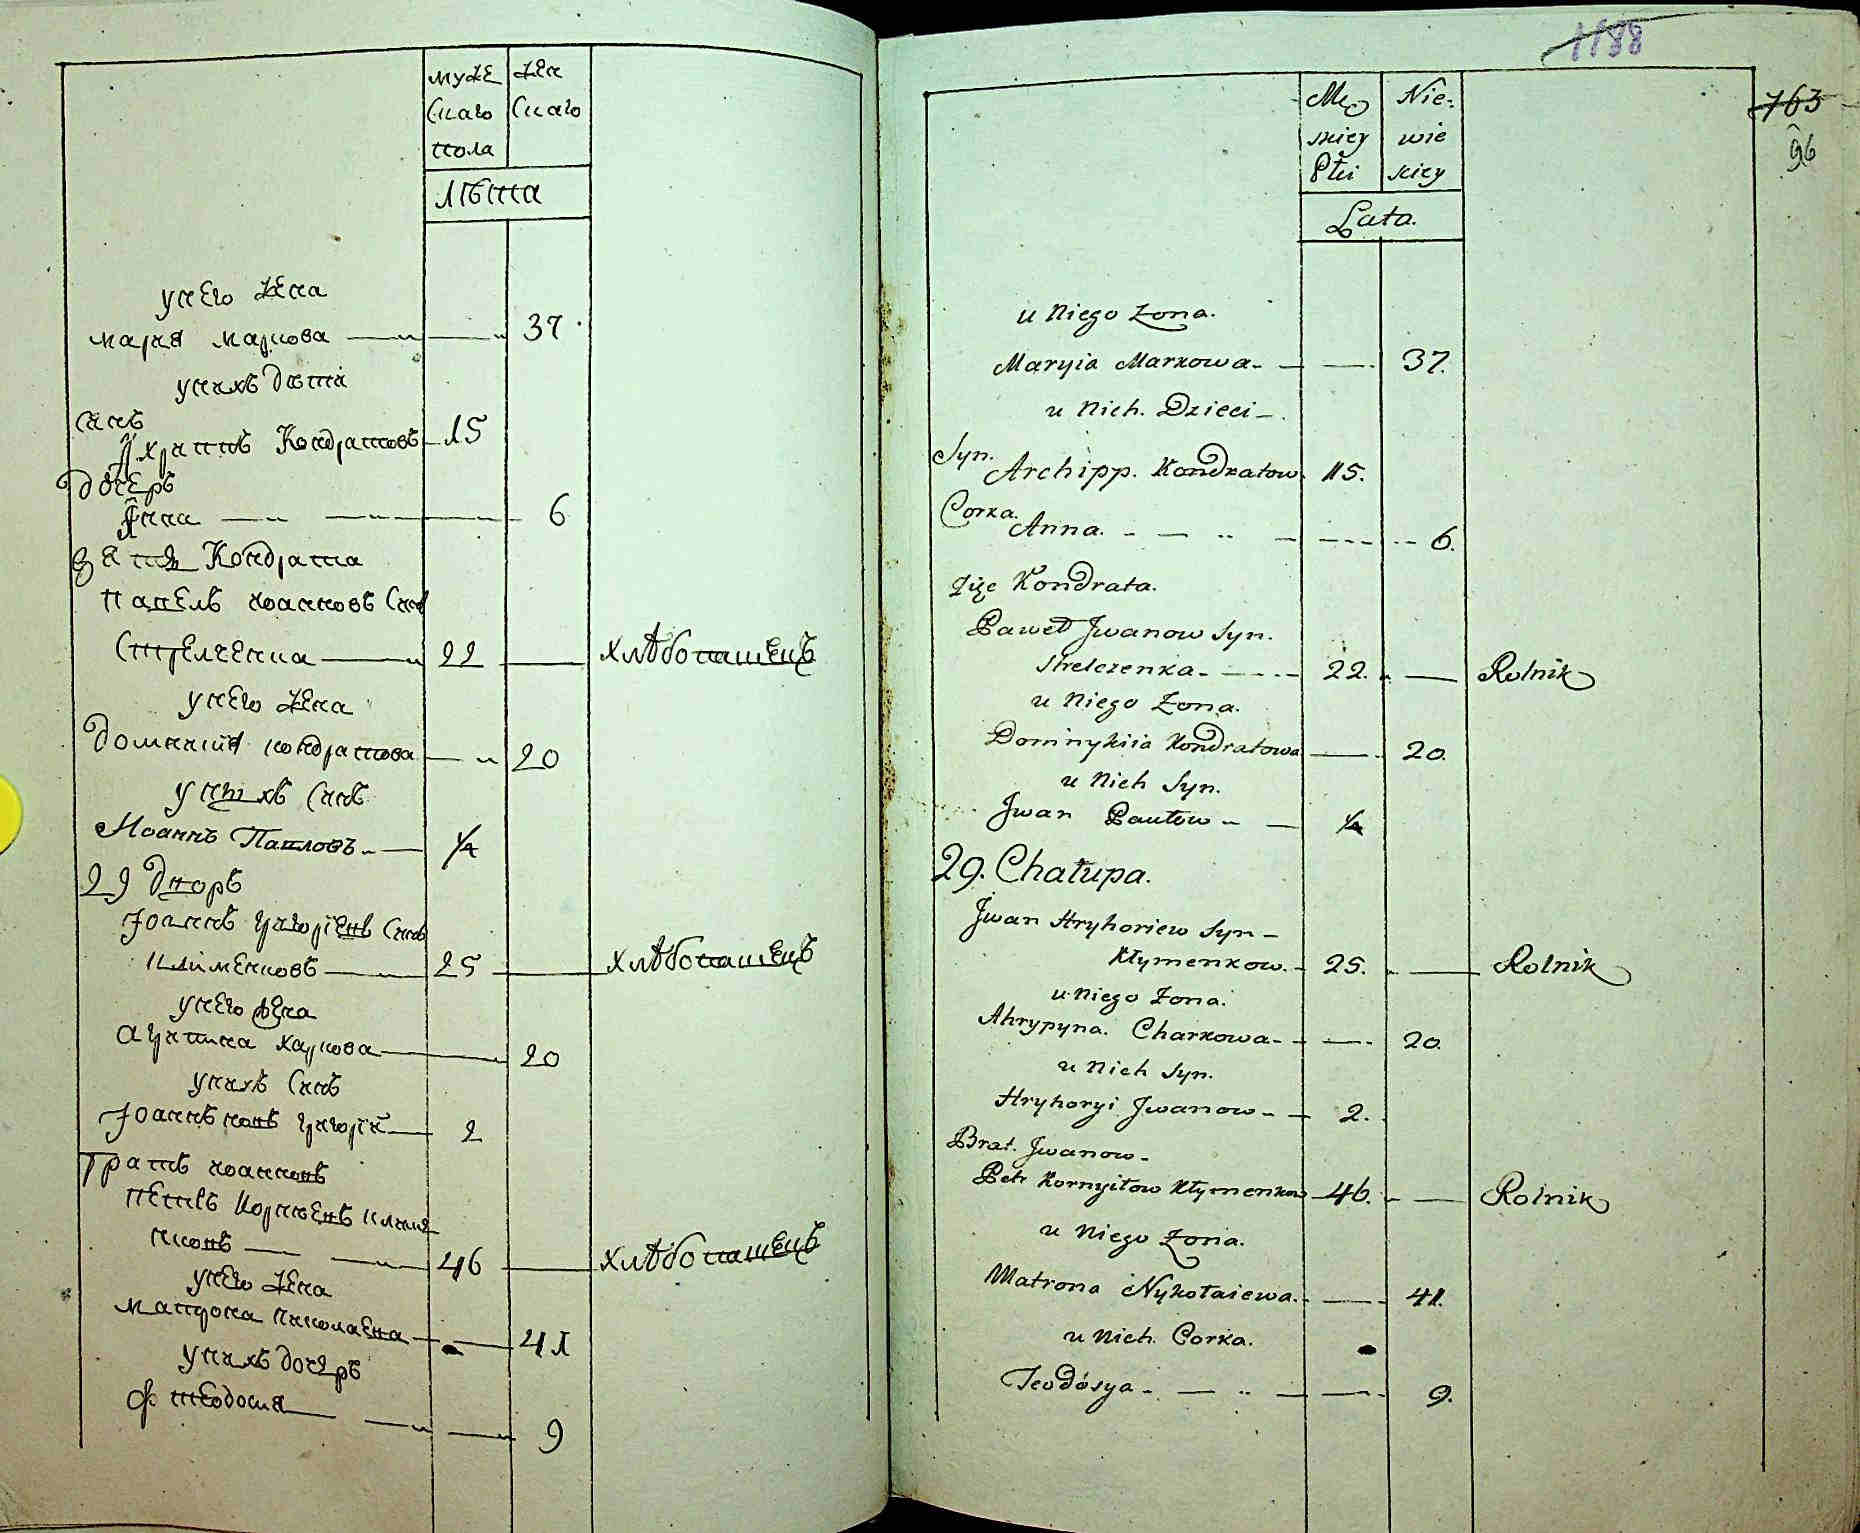 муже
скаго
пола
жен
скаго
лѣта
у него жена
мария маркова 37
у нихъ дѣти
синъ
Архиппъ Кондратовъ 15
дочерь
Анна 6
зять Кондрата
павелъ иоанновъ синъ
стрелченка 22 хлѣбопашецъ
у него жена
домникия кондратова 20
у нихъ синъ
Иоаннъ Павловъ 1/2
29 дворъ
Иоаннъ григориевъ синъ
клименковъ 25 хлѣбопашецъ
у него жена
агрипина харкова 20
у нихъ синъ
Иоанновъ григорий 2
братъ иоанновъ
петръ корниевъ климе
нковъ 46 хлѣбопашецъ
у него жена
матрона николаева 41
у нихъ дочерь
феодосия 9
1188
763
96
Mę
skiey
Płci
Nie-
wie
skiey
Lata.
u Niego Żona.
Maryia Markowa - 37.
u Nich. Dzieci -
Syn.
Archipp. Kondratow. 15.
Corka.
Anna. 6.
Zięc Kondrata.
Paweł Jwanow Syn.
Strelczenka - 22. Rolnik
u Niego Żona.
Dominykiia Kondratowa 20.
u Nich Syn.
Jwan Pawłow - 1/2
29. Chałupa.
Jwan Hryhoriew Syn -
Kłymenkow. - 25. Rolnik
u Niego Żona.
Ahrypyna. Charkowa - 20.
u Nich Syn.
Hryhoryi Jwanow - 2.
Brat. Jwanow -
Petr Kornyiłow Kłymenkow 46. Rolnik
u Niego Żona.
Matrona Nykołaiewa. 41.
u Nich. Corka.
Teodósya - 9.